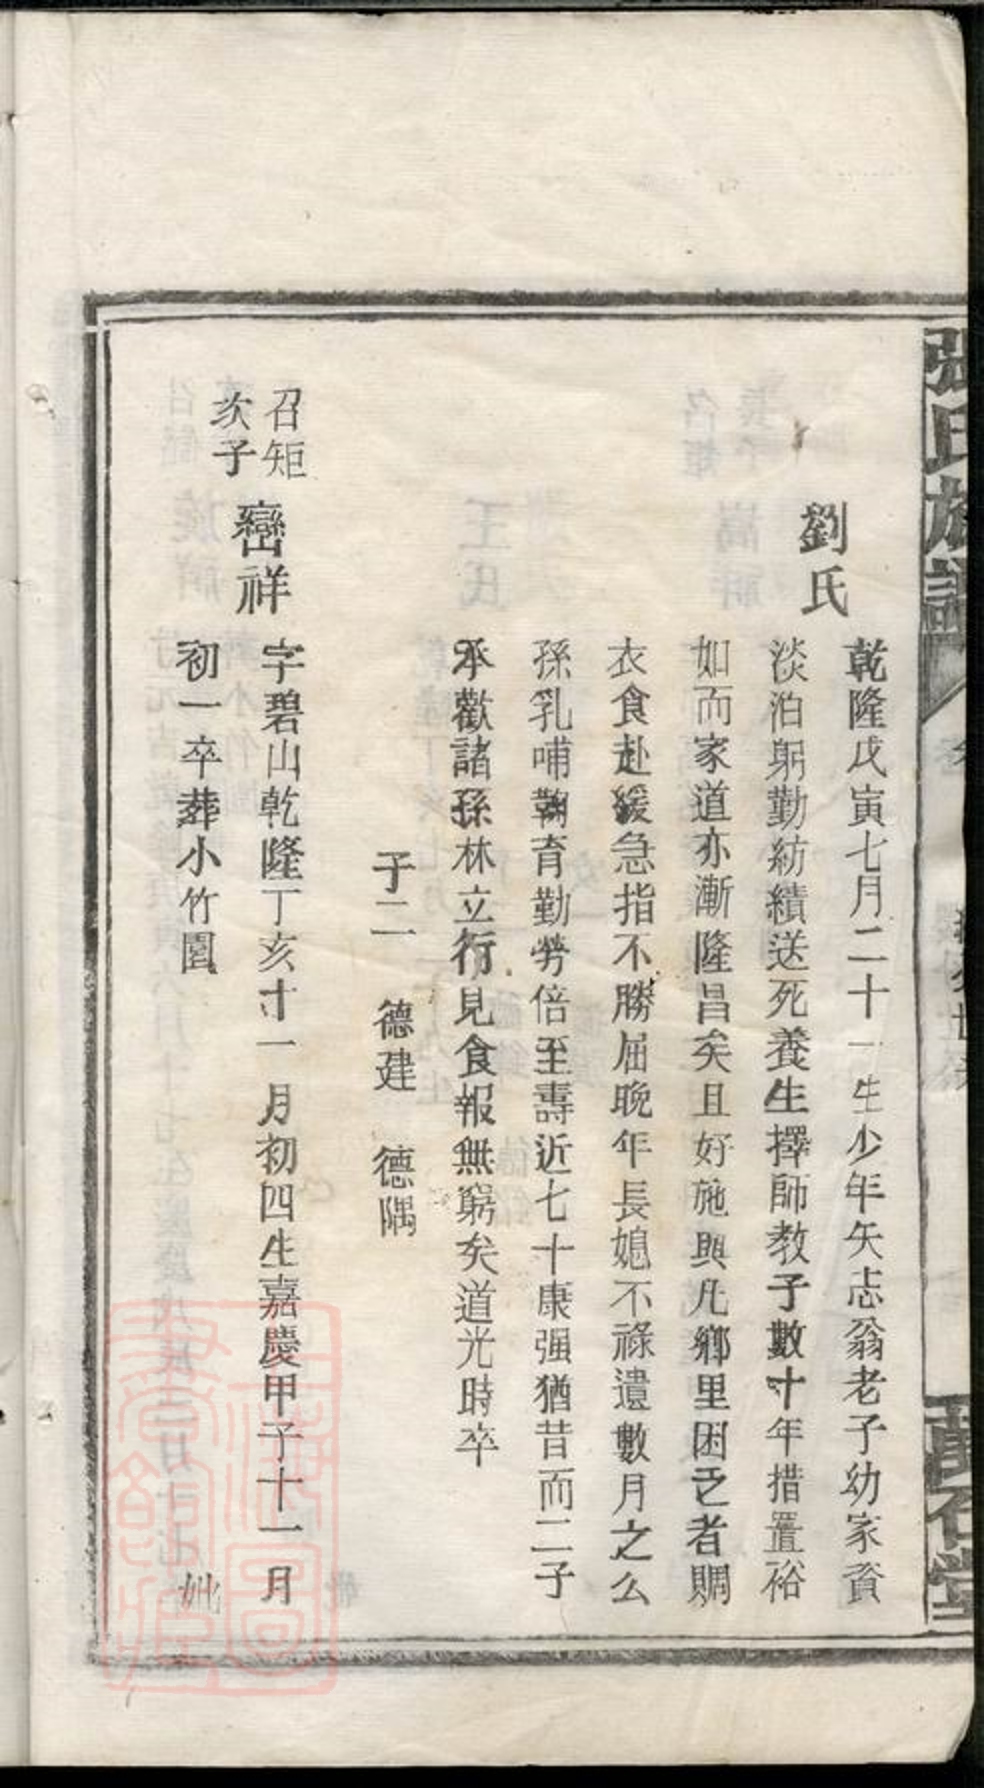 張氏族譜
劉氏
乾隆戊寅七月二十一生少年矢志翁老子幼家資
淡泊躬勤紡績送死養生擇師教子數十年措置裕
如而家道亦漸隆昌矣且好施與凡鄉里困乏者賙
衣食赴緩急指不勝屈晚年長媳不祿遺數月之么
孫乳哺鞠育勤勞倍至壽近七十康强猶昔而二子
承歡諸孫林立行見食報無窮矣道光時卒
子二 德建 德隅
召矩
次子
巒祥
字碧山乾隆丁亥十一月初四生嘉慶甲子十一月
初一卒葬小竹園 妣